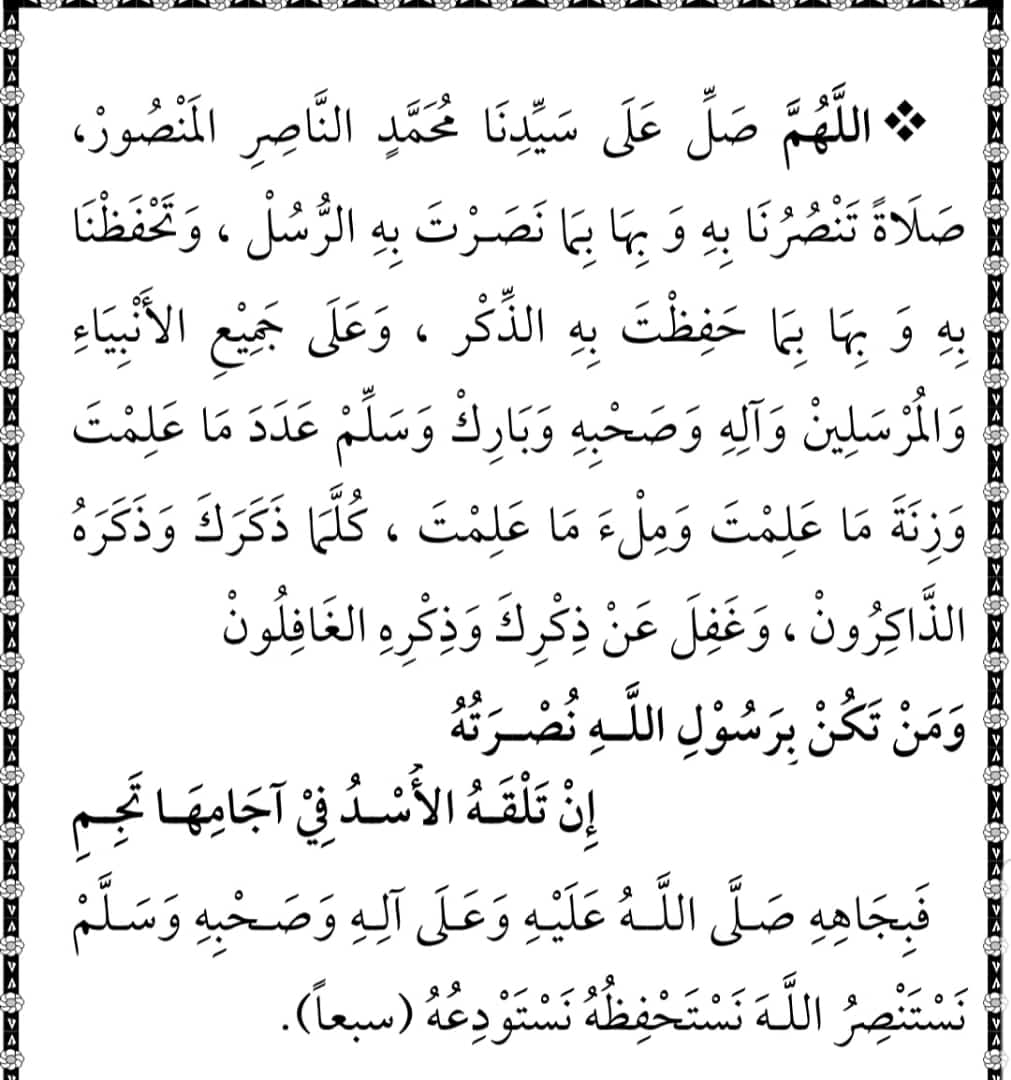 ❖ اللَّهُمَّ صَلِّ عَلَى سَيِّدِنَا مُحَمَّدٍ النَّاصِرِ المَنْصُورْ،
صَلَاةً تَنْصُرُنَا بِهِ وَ بِهَا بِمَا نَصَرْتَ بِهِ الرُّسُلْ ، وَتَحْفَظْنَا
بِهِ وَ بِهَا بِمَا حَفِظْتَ بِهِ الذِّكْر ، وَعَلَى جَمِيْعِ الأَنْبِيَاءِ
وَالمُرْسَلِينْ وَآلِهِ وَصَحْبِهِ وَبَارِكْ وَسَلِّمْ عَدَدَ مَا عَلِمْتَ
وَزِنَةَ مَا عَلِمْتَ وَمِلْءَ مَا عَلِمْتَ ، كُلَّمَا ذَكَرَكَ وَذَكَرَهُ
الذَّاكِرُونْ ، وَغَفِلَ عَنْ ذِكْرِكَ وَذِكْرِهِ الغَافِلُونْ
وَمَنْ تَكُنْ بِرَسُوْلِ اللَّـهِ نُصْـرَتُهُ
إِنْ تَلْقَـهُ الأُسْـدُ فِيْ آجَامِهَـا تَجِـمِ
فَبِجَاهِهِ صَلَّى اللَّـهُ عَلَيْهِ وَعَلَى آلِهِ وَصَحْبِهِ وَسَلَّمْ
نَسْتَنْصِرُ اللَّهَ نَسْتَحْفِظُهُ نَسْتَوْدِعُهُ (سبعاً).